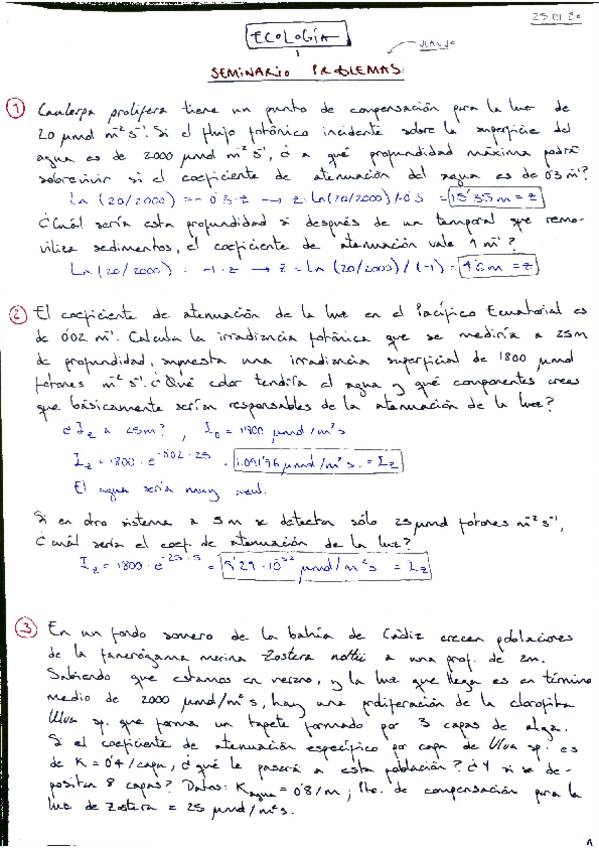 25·01·20
ECOLOGÍA
JUANJO
SEMINARIO PROBLEMAS
1 Caulerpa prolifera tiene un punto de compensación para la luz de
20 μmol m⁻² s⁻¹. Si el flujo fotónico incidente sobre la superficie del
agua es de 2000 μmol m⁻² s⁻¹, ¿a qué profundidad máxima podrá
sobrevivir si el coeficiente de atenuación del agua es de 0'3 m⁻¹?
Ln (20/2000) = -0'3·z → z = Ln(20/2000)/-0'3 = 15'35 m = z
¿Cuál sería esta profundidad si después de un temporal que remo-
viliza sedimentos, el coeficiente de atenuación vale 1 m⁻¹?
Ln (20/2000) = -1·z → z = Ln (20/2000)/(-1) = 4'6 m = z
2 El coeficiente de atenuación de la luz en el Pacífico Ecuatorial es
de 0'02 m⁻¹. Calcula la irradiancia fotónica que se mediría a 25m
de profundidad, supuesta una irradiancia superficial de 1800 μmol
fotones m⁻² s⁻¹. ¿Qué color tendría el agua y qué componentes crees
que básicamente serían responsables de la atenuación de la luz?
¿I_z a 25m? , I₀ = 1800 μmol/m² s
I_z = 1800 · e^-0'02·25 = 1.091'76 μmol/m² s. = I_z
El agua sería muy azul.
Si en otro sistema a 5m se detectar sólo 25 μmol fotones m⁻² s⁻¹,
¿cuál sería el coef. de atenuación de la luz?
I_z = 1800 · e^-25·5 = 9'29 · 10^-52 μmol/m² s = I_z
3 En un fondo somero de la bahía de Cádiz crecen poblaciones
de la fanerógama marina Zostera noltii a una prof. de 2m.
Sabiendo que estamos en verano, y la luz que llega es en término
medio de 2000 μmol/m² s, hay una proliferación de la clorofita
Ulva sp. que forma un tapete formado por 3 capas de alga.
Si el coeficiente de atenuación específico por capa de Ulva sp. es
de K = 0'4/capa, ¿qué le pasará a esta población? ¿Y si se de-
positan 8 capas? Datos: K agua = 0'8/m ; Pto. de compensación para la
luz de Zostera = 25 μmol/m² s.
1